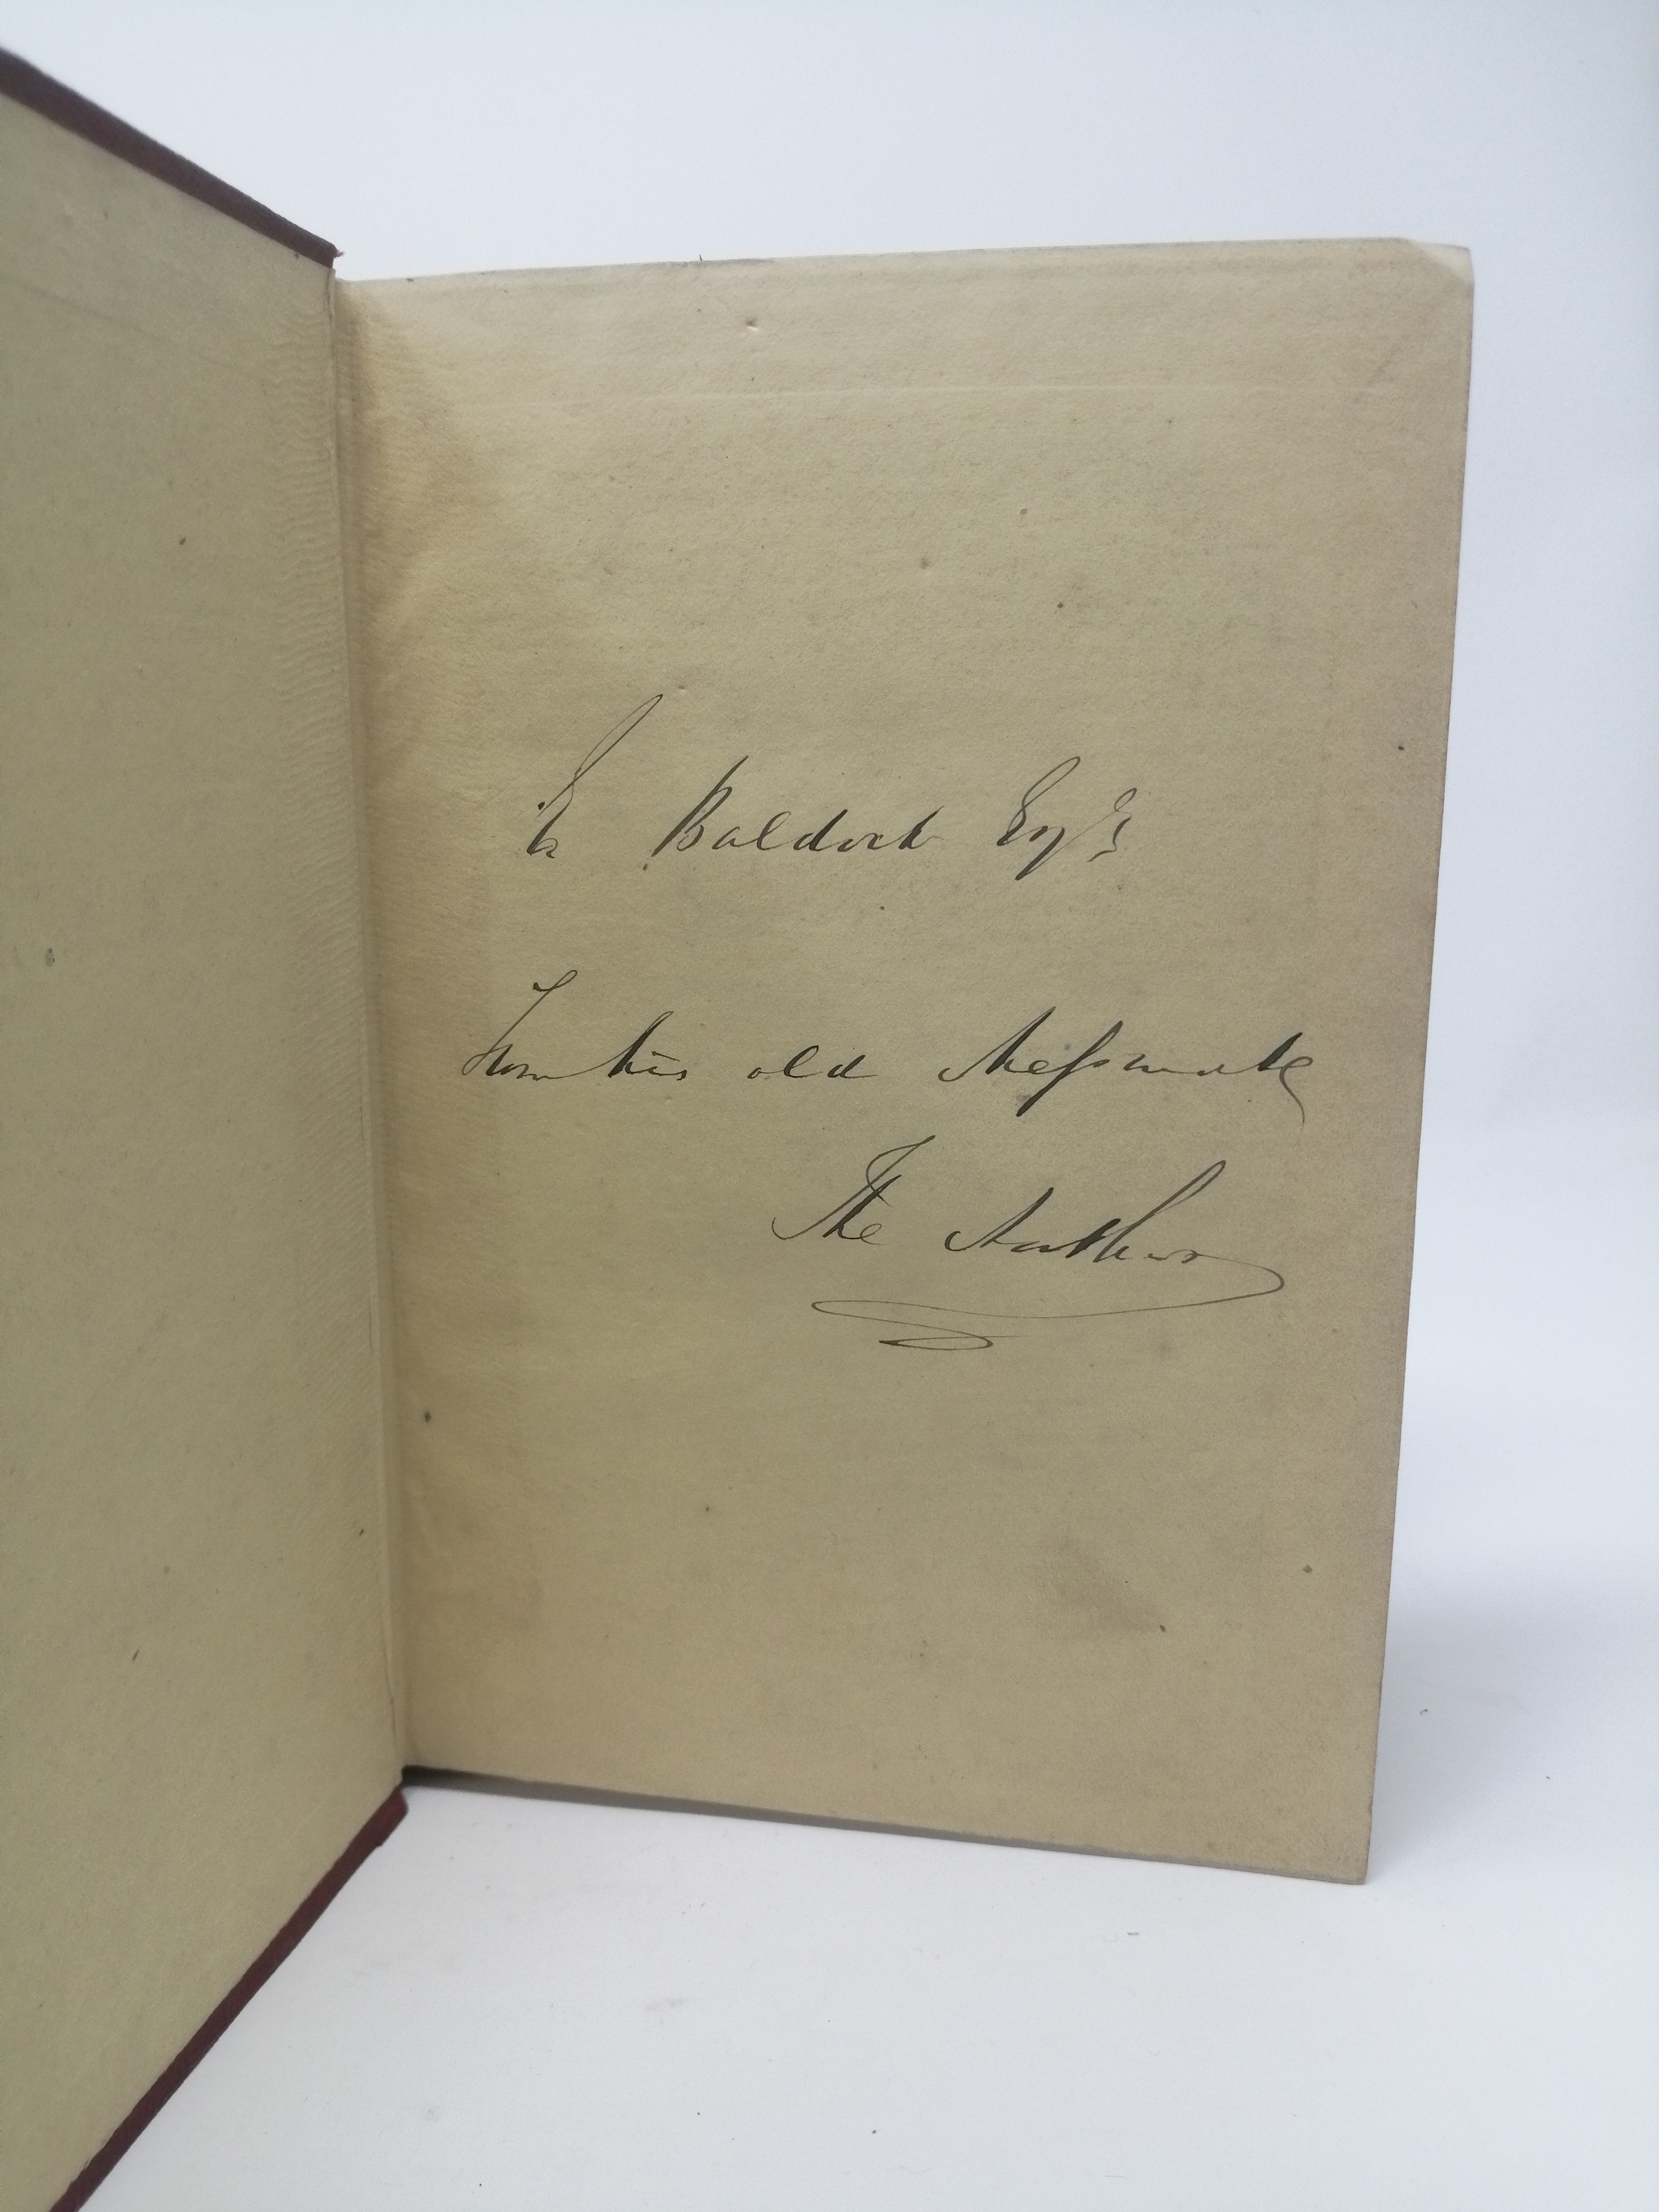 E Baldock Esqr
From his old Messmate
The Author